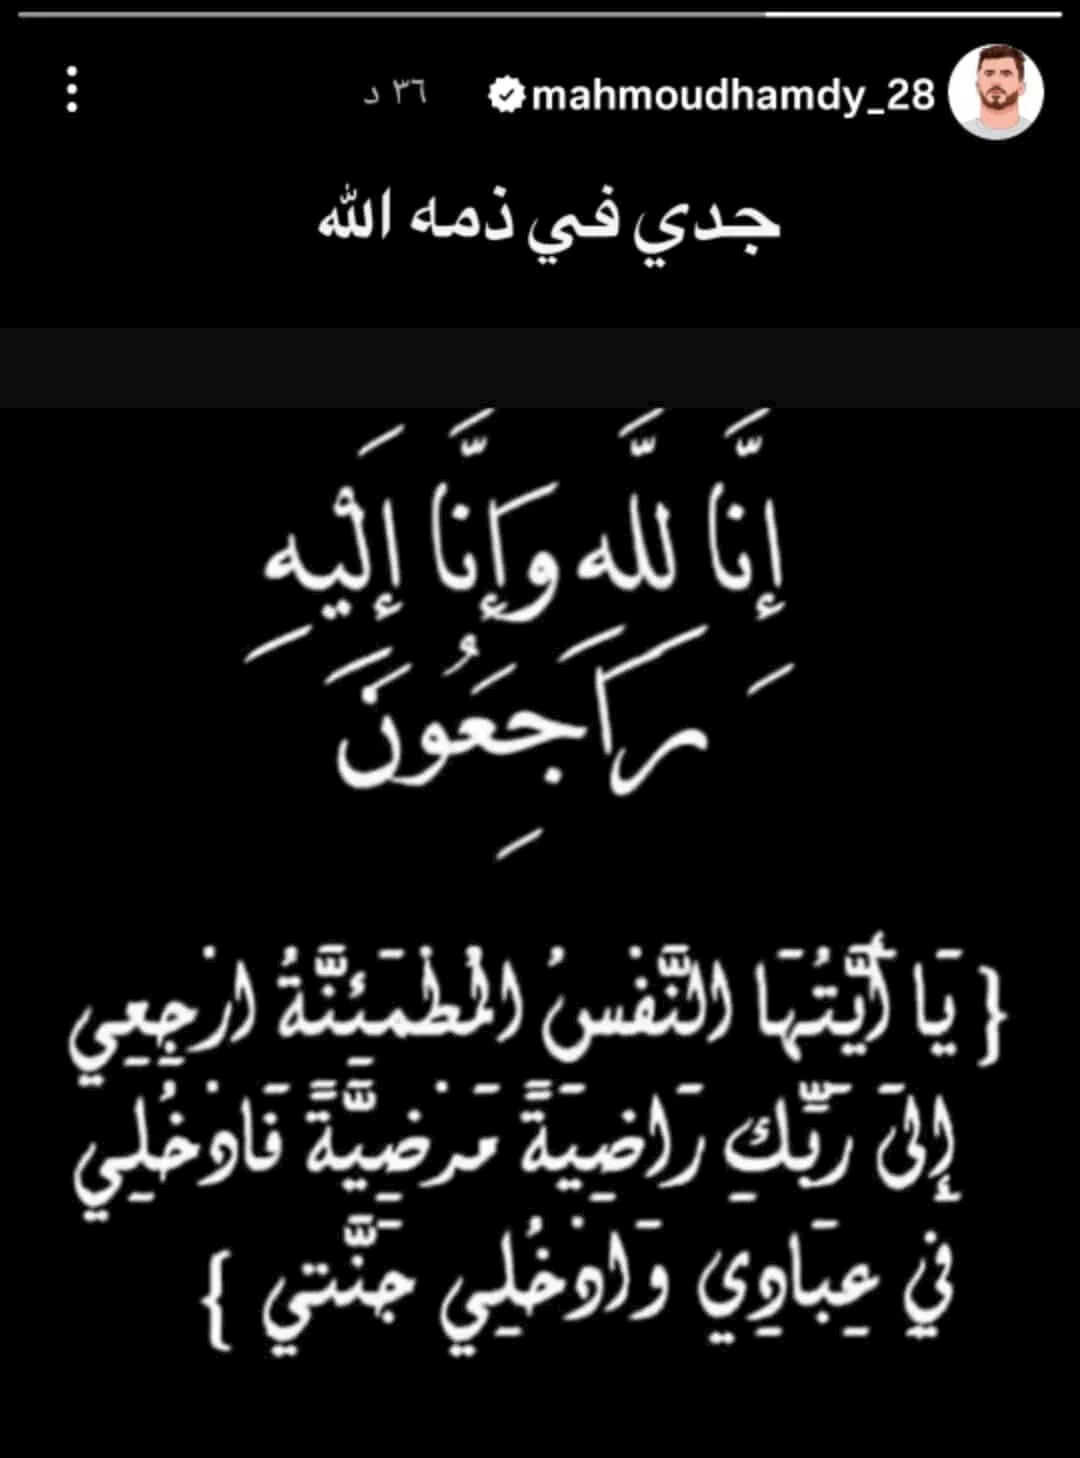 mahmoudhamdy_28 ٣٦ د
جدي في ذمه الله
إِنَّا لله وَإِنَّا إِلَيْهِ
رَاجِعُونَ
{ يَا أَيَّتُهَا النَّفْسُ الْمُطْمَئِنَّةُ ارْجِعِي
إِلَى رَبِّكِ رَاضِيَةً مَرْضِيَّةً فَادْخُلِي
فِي عِبَادِي وَادْخُلِي جَنَّتِي }